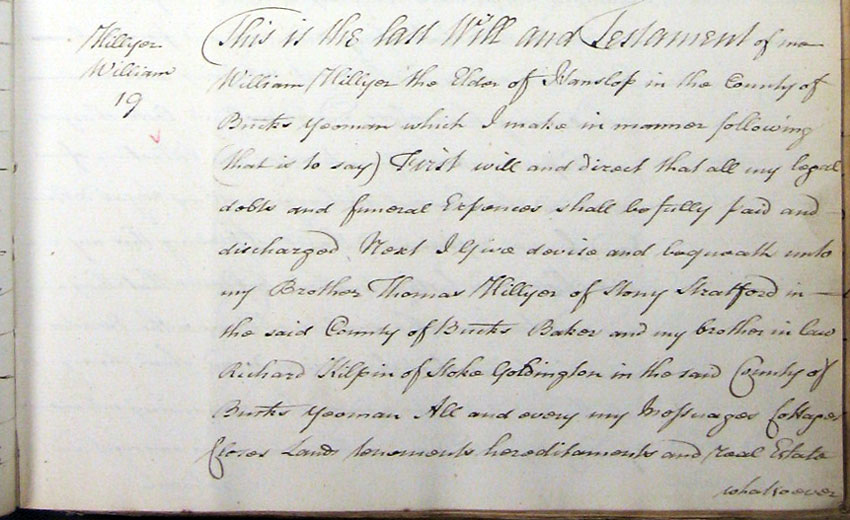 Hillyer
William
19
This is the last Will and Testament of me
William Hillyer the Elder of Hanslop in the County of
Bucks Yeoman which I make in manner following
(that is to say) First will and direct that all my legal
debts and funeral Expences shall be fully paid and
discharged Next I Give devise and bequeath unto
my Brother Thomas Hillyer of Stony Stratford in
the said County of Bucks Baker and my brother in law
Richard Kilpin of Stoke Goldington in the said County of
Bucks Yeoman All and every my Messuages Cottages
Closes Lands tenements hereditaments and real Estate
whatsoever